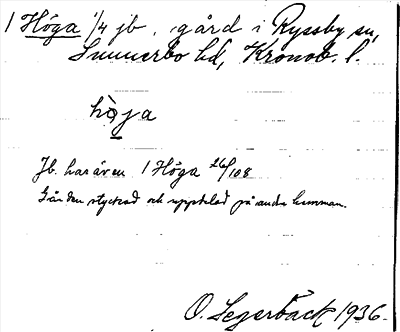 1 Höga 1/4 jb. gård i Ryssby sn,
Sunnerbo hd, Kronob. l.
hò̱ja
Jb. har även 1 Höga 26/108
Gården styckad och uppdelad på andra hemman.
O. Legerbäck 1936.